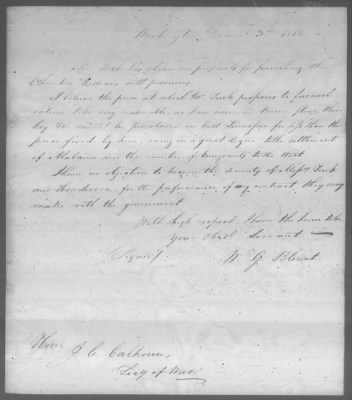 Washington
Mr. Turk has shown me proposals for furnishing the
Cherokee Indians with provisions.
I believe the price at which Mr Turk proposes to furnish
rations to be very reasonable as I am
be purchased in East Tennessee for less than the
price fixed by him, owing in a great degree, to the settlement
of Alabama and the number of Emigrants to the West
I have no objection to become the security of Messrs Turk
and Henderson, for the performance of any contract they may
make with the government.
With high respect I have the honor to be
Your Obedt Servant
Signed W G Blount
Hon: J C Calhoun,
Secy of War